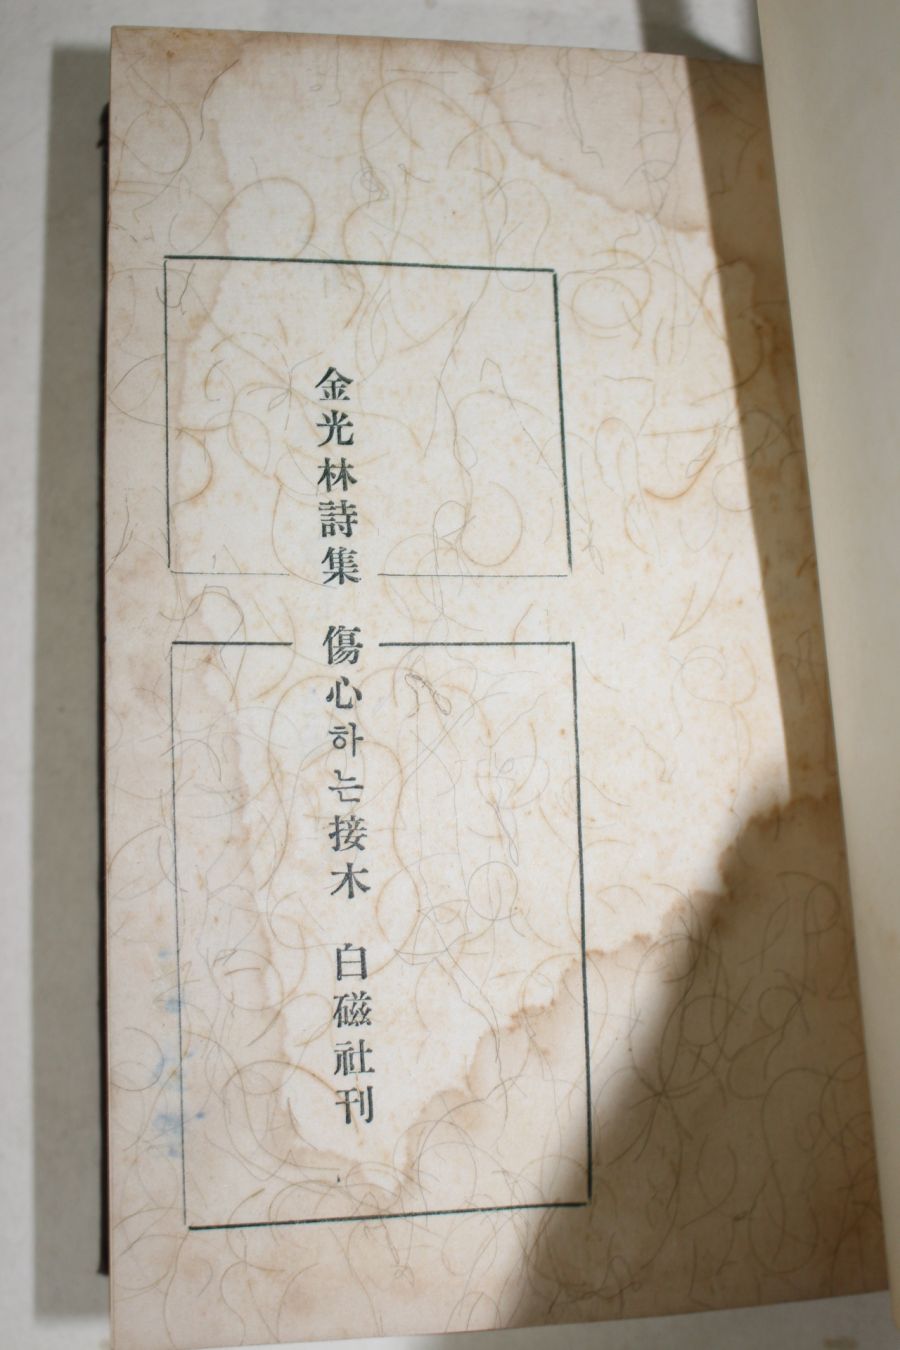 金光林詩集 傷心하는接木 白磁社刊